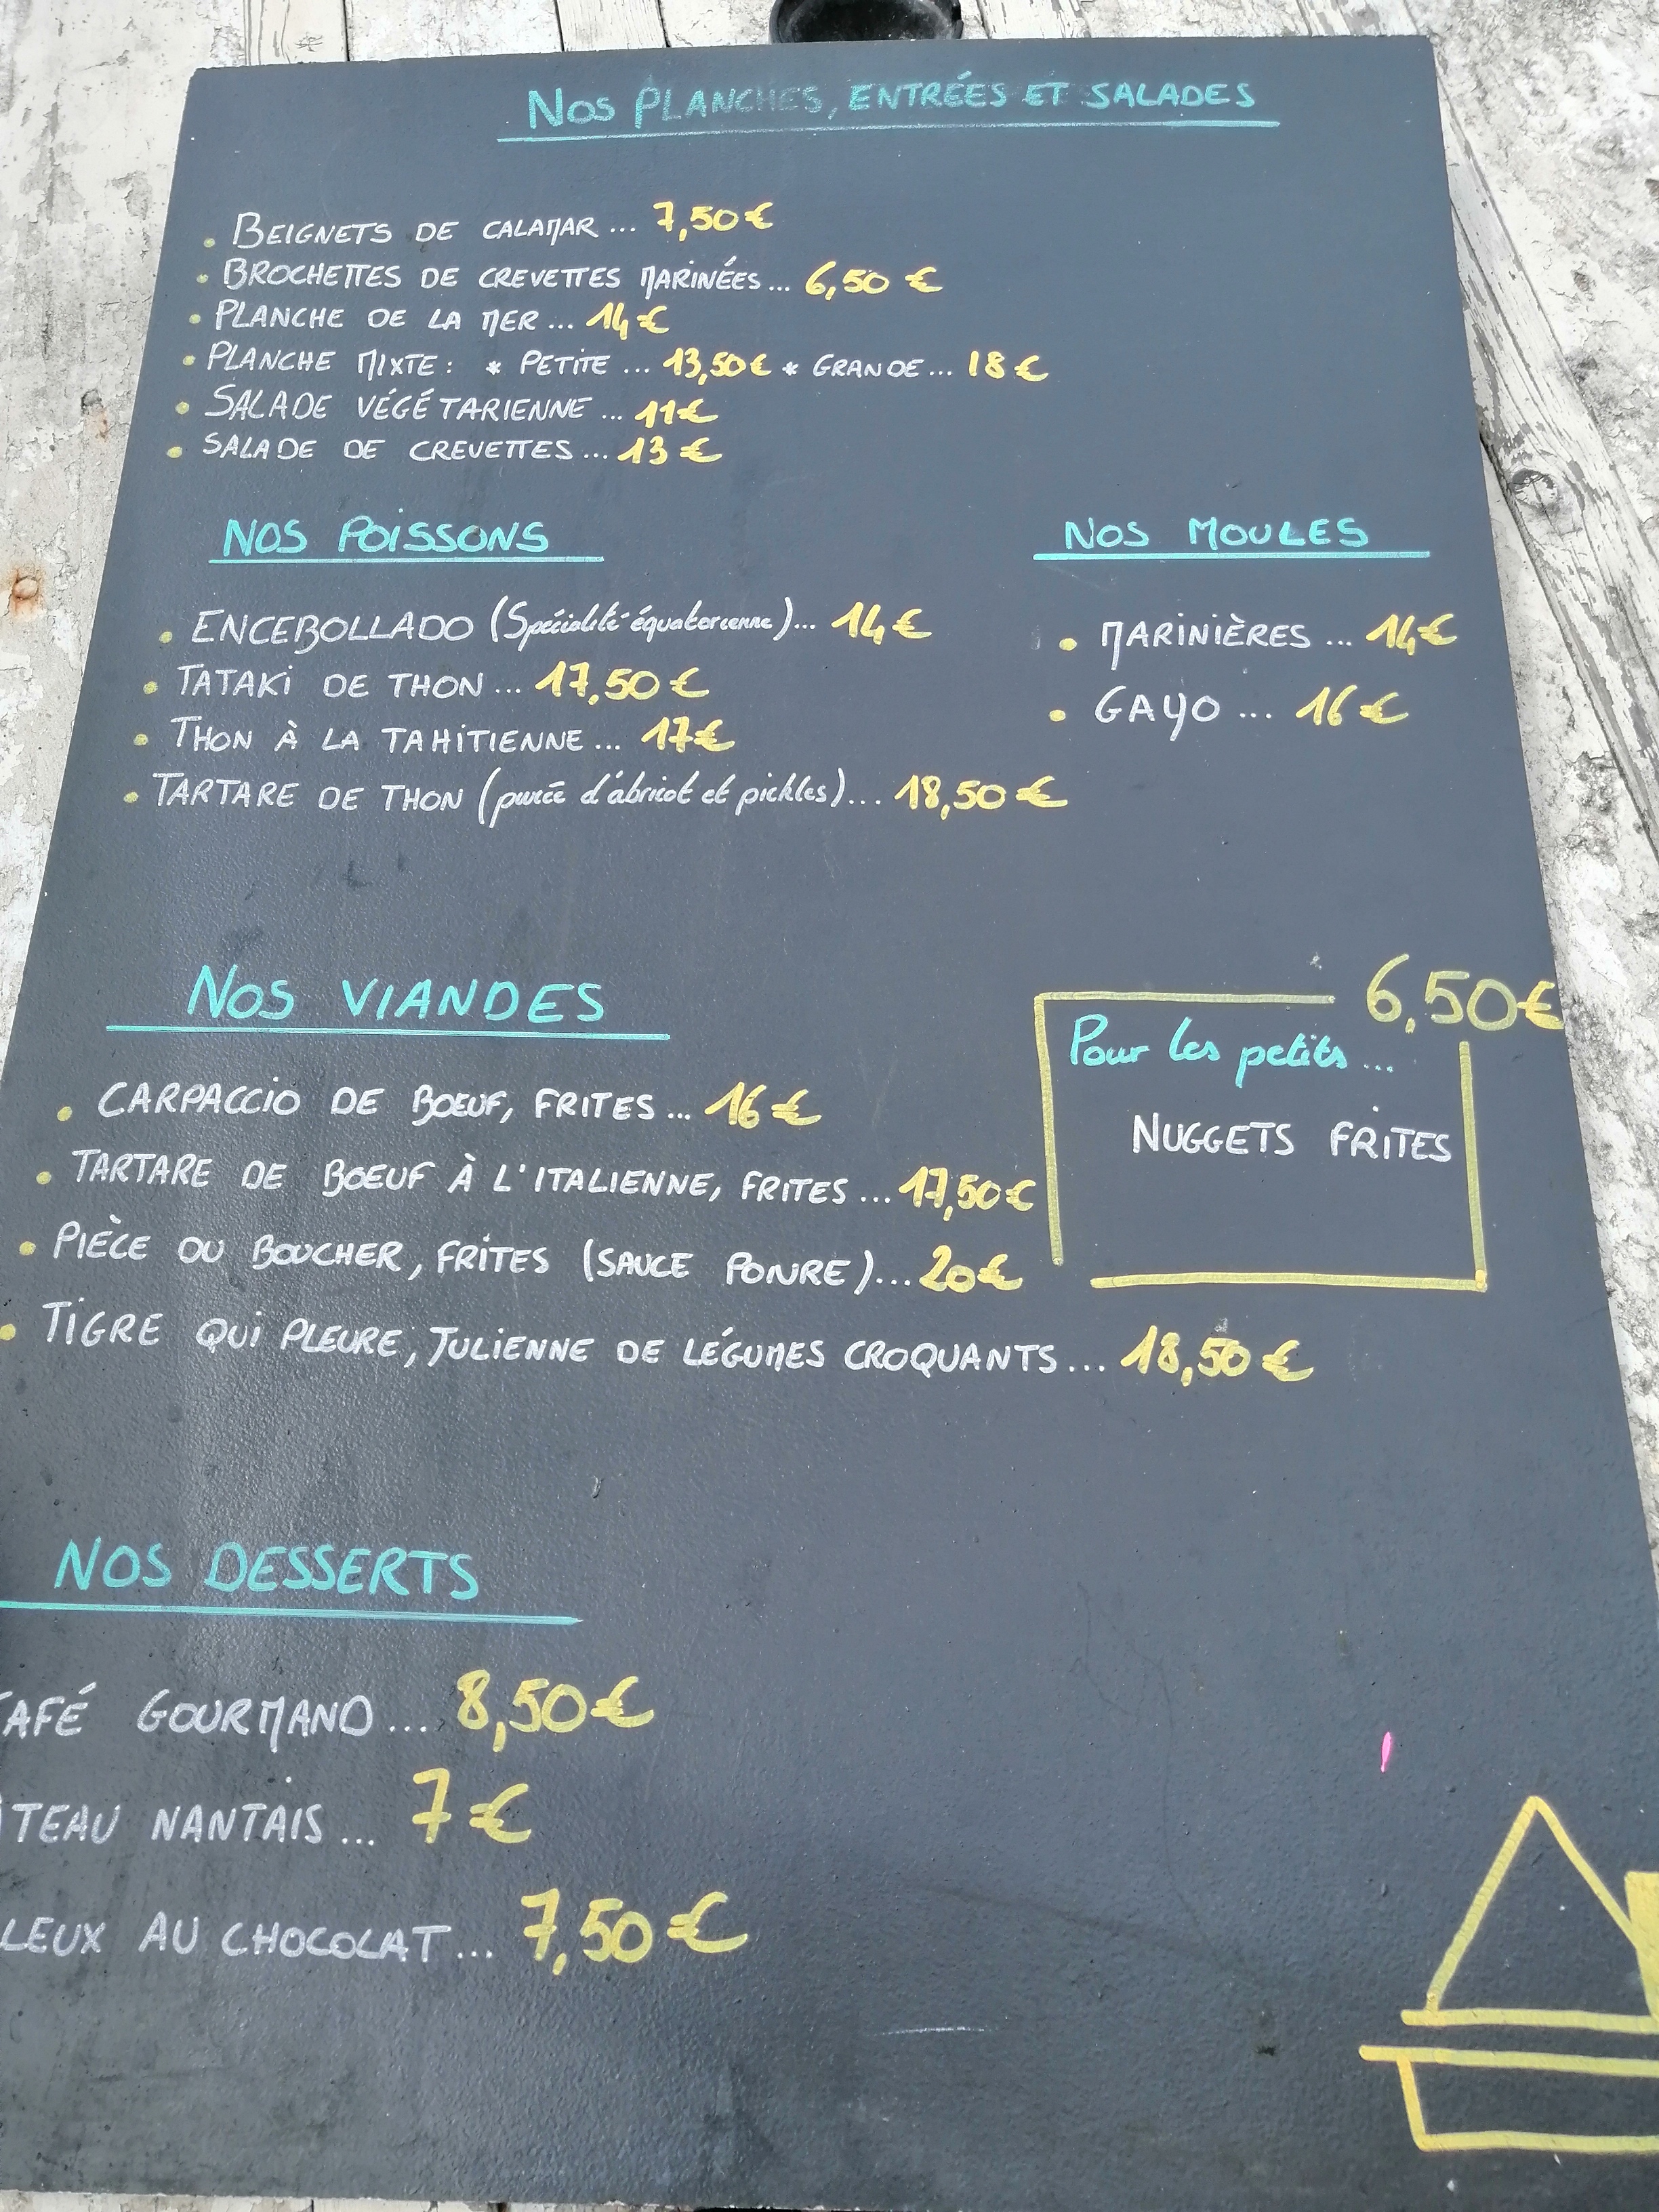 NOS PLANCHES, ENTRÉES ET SALADES
• BEIGNETS DE CALAMAR... 7,50€
• BROCHETTES DE CREVETTES MARINÉES... 6,50 €
• PLANCHE DE LA MER... 14€
• PLANCHE MIXTE: * PETITE ... 13,50€ * GRANDE... 18€
• SALADE VÉGÉTARIENNE... 11€
• SALADE DE CREVETTES... 13€
NOS POISSONS
• ENCEBOLLADO (Spécialité équatorienne)... 14€
• TATAKI DE THON... 17,50€
• THON À LA TAHITIENNE... 17€
• TARTARE DE THON (purée d'abricot et pickles)... 18,50€
NOS MOULES
• MARINIÈRES... 14€
• GAYO... 16€
NOS VIANDES
• CARPACCIO DE BOEUF, FRITES... 16€
• TARTARE DE BOEUF À L'ITALIENNE, FRITES... 17,50€
• PIÈCE DU BOUCHER, FRITES (SAUCE POIVRE)... 20€
• TIGRE QUI PLEURE, JULIENNE DE LÉGUMES CROQUANTS... 18,50€
6,50€
Pour les petits...
NUGGETS FRITES
NOS DESSERTS
CAFÉ GOURMAND... 8,50€
ÂTEAU NANTAIS... 7€
LEUX AU CHOCOLAT... 7,50€